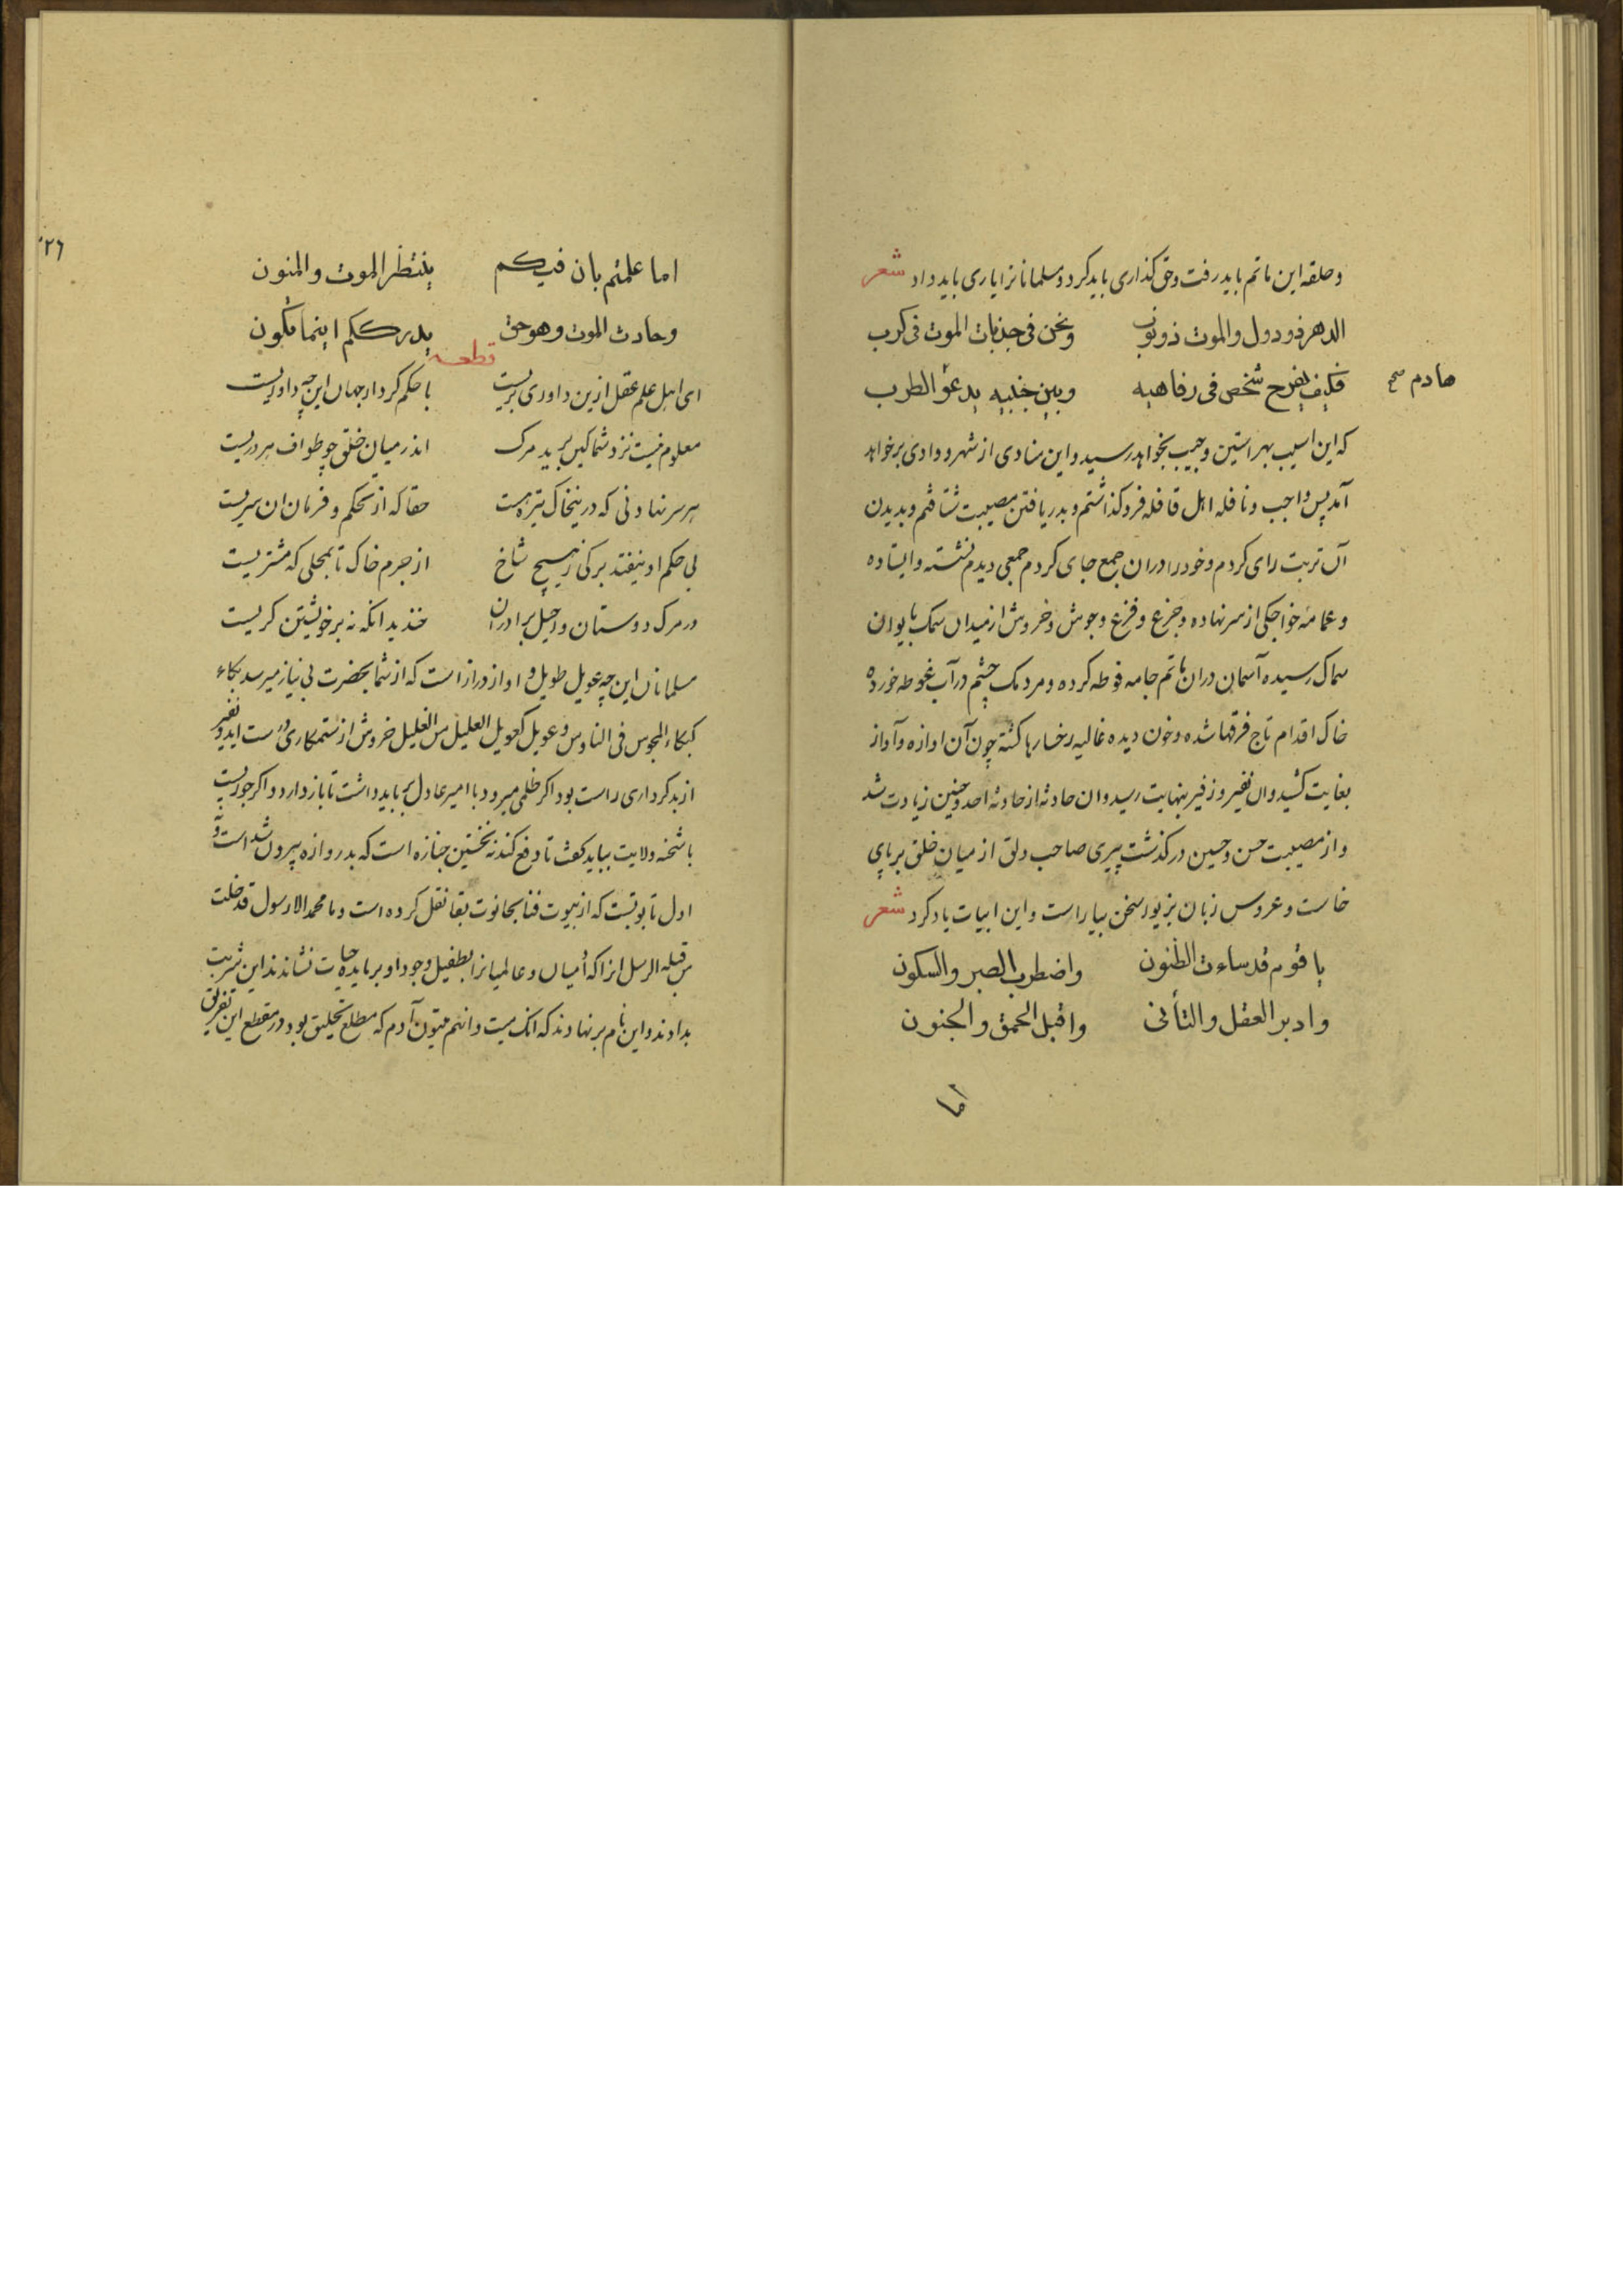 وحلقه این ماتم باید رفت وحق کذاری باید کرد ومسلمانانرا یاری باید داد شعر
الدهر ذو دول والموت ذو نوب ونحن فی جذبات الموت فی کرب
فکیف یفرح شخص فی رفاهیه وبین جنبیه یدعو الطرب
هادم صح
که این اسیب بهر استین وجیب بخواهد رسید واین منادی از شهر ووادی برخواهد
آمد پس واجب ونافله اهل قافله فرو کذاشتم وبدریافتن مصیبت شتافتم وبدیدن
آن تربت رای کردم وخود را دران جمع جای کردم جمعی دیدم نشسته وایستاده
وعمامه خواجکی از سر نهاده وجزع وفزع وجوش وخروش از میدان سمک بایوان
سماک رسیده آسمان دران ماتم جامه فوطه کرده ومردمک چشم در آب غوطه خورده
خاک اقدام تاج فرقها شده وخون دیده غالیه رخسارها کشته چون آن اوازه وآواز
بغایت کشید وان نفیر وزفیر بنهایت رسید وان حادثه از حادثه احد وحنین زیادت شد
واز مصیبت حسن وحسین در کذشت پیری صاحب دلق از میان خلق بر پای
خاست وعروس زبان بزیور سخن بیاراست واین ابیات یاد کرد شعر
یا قوم قد ساءت الظنون واضطرب الصبر والسکون
وادبر العقل والتأنی واقبل الحمق والجنون
اما
٢٦
اما علمتم بان فیکم ینتظر الموت والمنون
وحادث الموت وهو حق یدرککم اینما تکون
قطعه
ای اهل علم عقل ازین داوری بریست با حکم کردار جهان این چه داوریست
معلوم نیست نزد شما کین برید مرک اندر میان خلق چو طواف هر دریست
هر سر نهادنی که درین خاک تیره هست حقا که از تحکم وفرمان ان سریست
بی حکم او نیفتد برکی ز هیچ شاخ از جرم خاک تا بمحلی که مشتریست
در مرک دوستان ورحیل برادران خندید انکه نه بر خویشتن کریست
مسلمانان این چه عویل طویل واواز دراز است که از شما بحضرت بی نیاز میرسد بکاء
کبکاء المجوس فی الناوس وعویل کعویل العلیل من الغلیل خروش از ستمکاری درست اید ونفیر
از بد کرداری راست بود اکر ظلمی میرود با امیر عادل بر باید داشت تا باز دارد واکر جوریست
با شحنه ولایت بباید کفت تا دفع کند نه نخستین جنازه است که بدروازه بیرون شد است ونه
اول تابوتست که از بیوت فنا بحانوت بقا نقل کرده است وما محمد الا رسول قد خلت
من قبله الرسل انرا که آدمیان وعالمیانرا بطفیل وجود او بر مایده حیات نشاندند این شربت
بدادند واین نام بر نهادند که انک میت وانهم میتون آدم که مطلع تخلیق بود در مقطع این تفریق